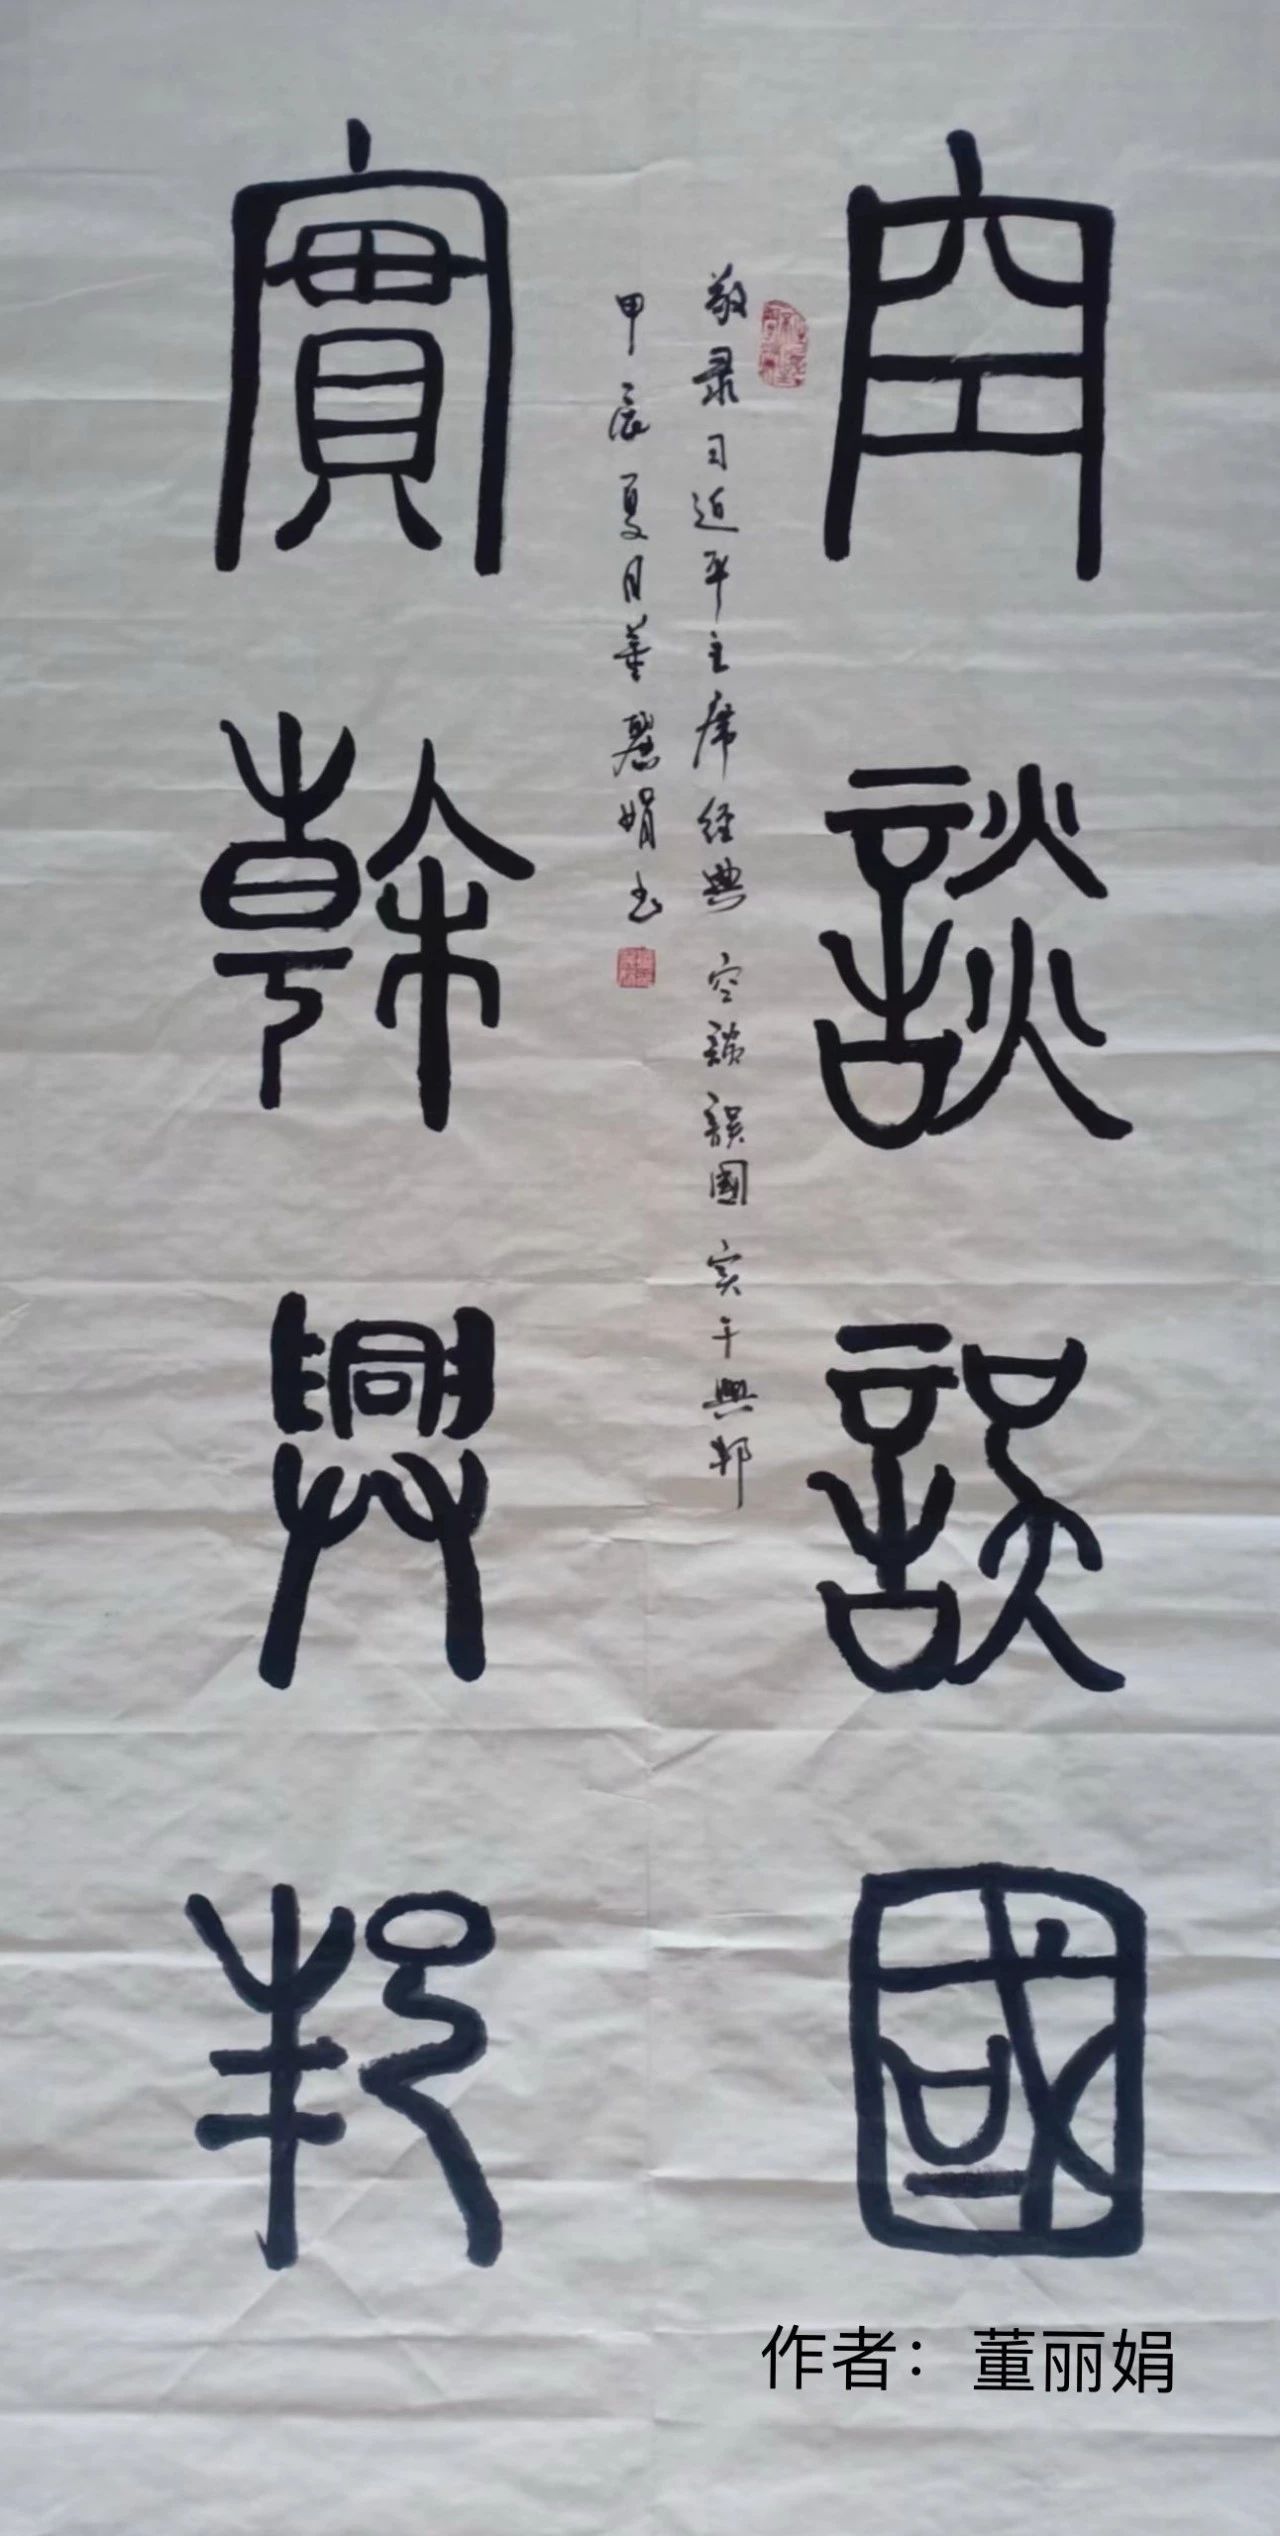 空談誤國
敬录习近平主席经典 空談誤國 实干興邦
甲辰夏月董麗娟书
實幹興邦
作者：董丽娟